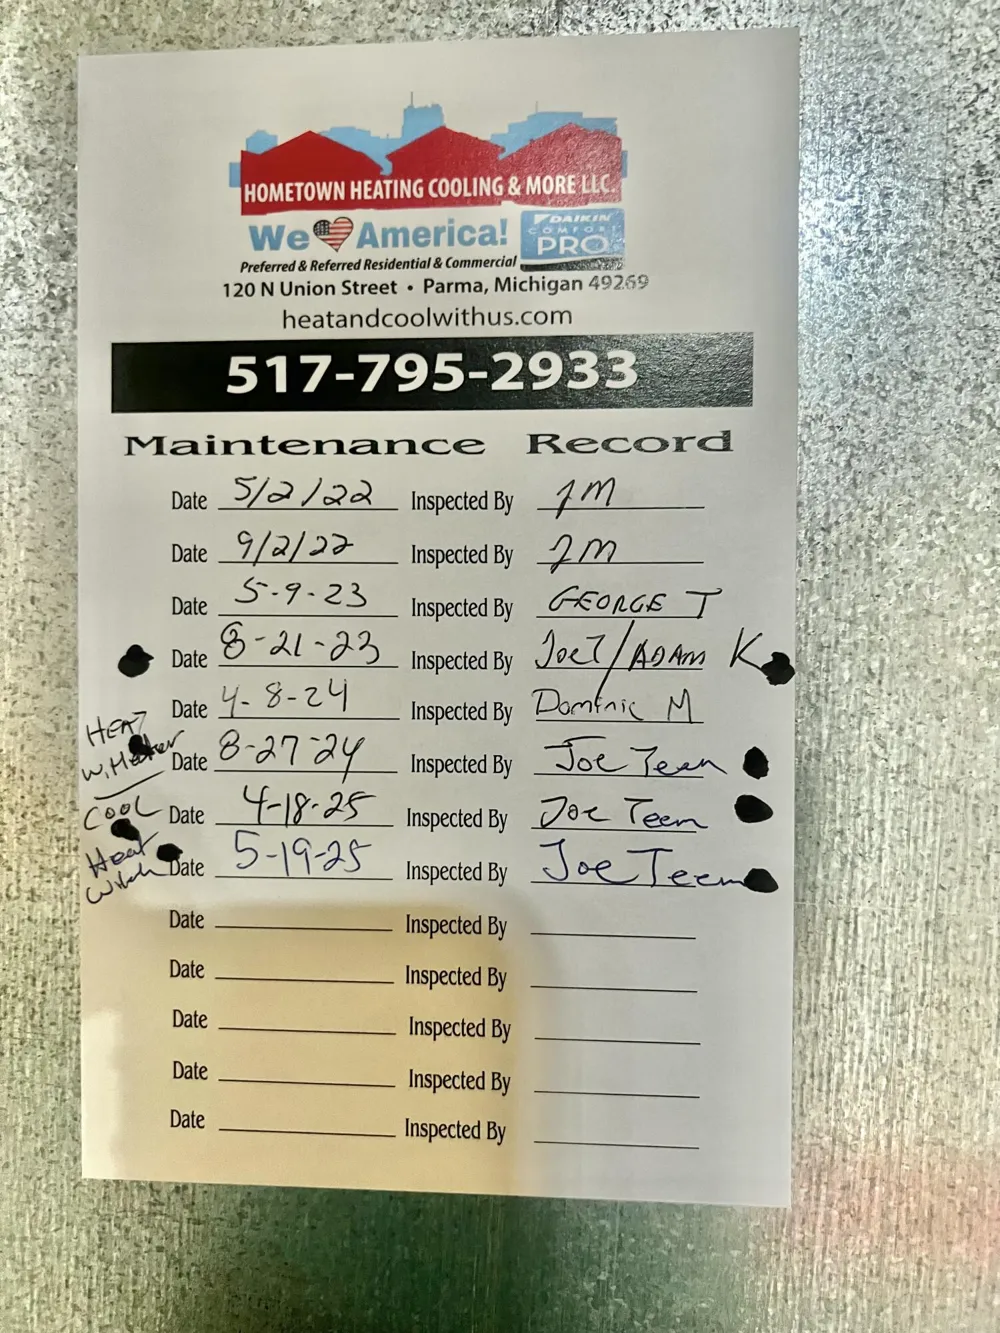 HOMETOWN HEATING COOLING & MORE LLC.
We America! DAIKIN COMFORT PRO
Preferred & Referred Residential & Commercial
120 N Union Street • Parma, Michigan 49269
heatandcoolwithus.com
517-795-2933
Maintenance Record
Date 5/2/22 Inspected By JM
Date 9/2/22 Inspected By JM
Date 5-9-23 Inspected By GEORGE T
Date 8-21-23 Inspected By Joe T/ADAM K
Date 4-8-24 Inspected By Dominic M
HEAT W. Heater Date 8-27-24 Inspected By Joe Teem
COOL Date 4-18-25 Inspected By Joe Teem
Heat Date 5-19-25 Inspected By Joe Teem
Date Inspected By
Date Inspected By
Date Inspected By
Date Inspected By
Date Inspected By